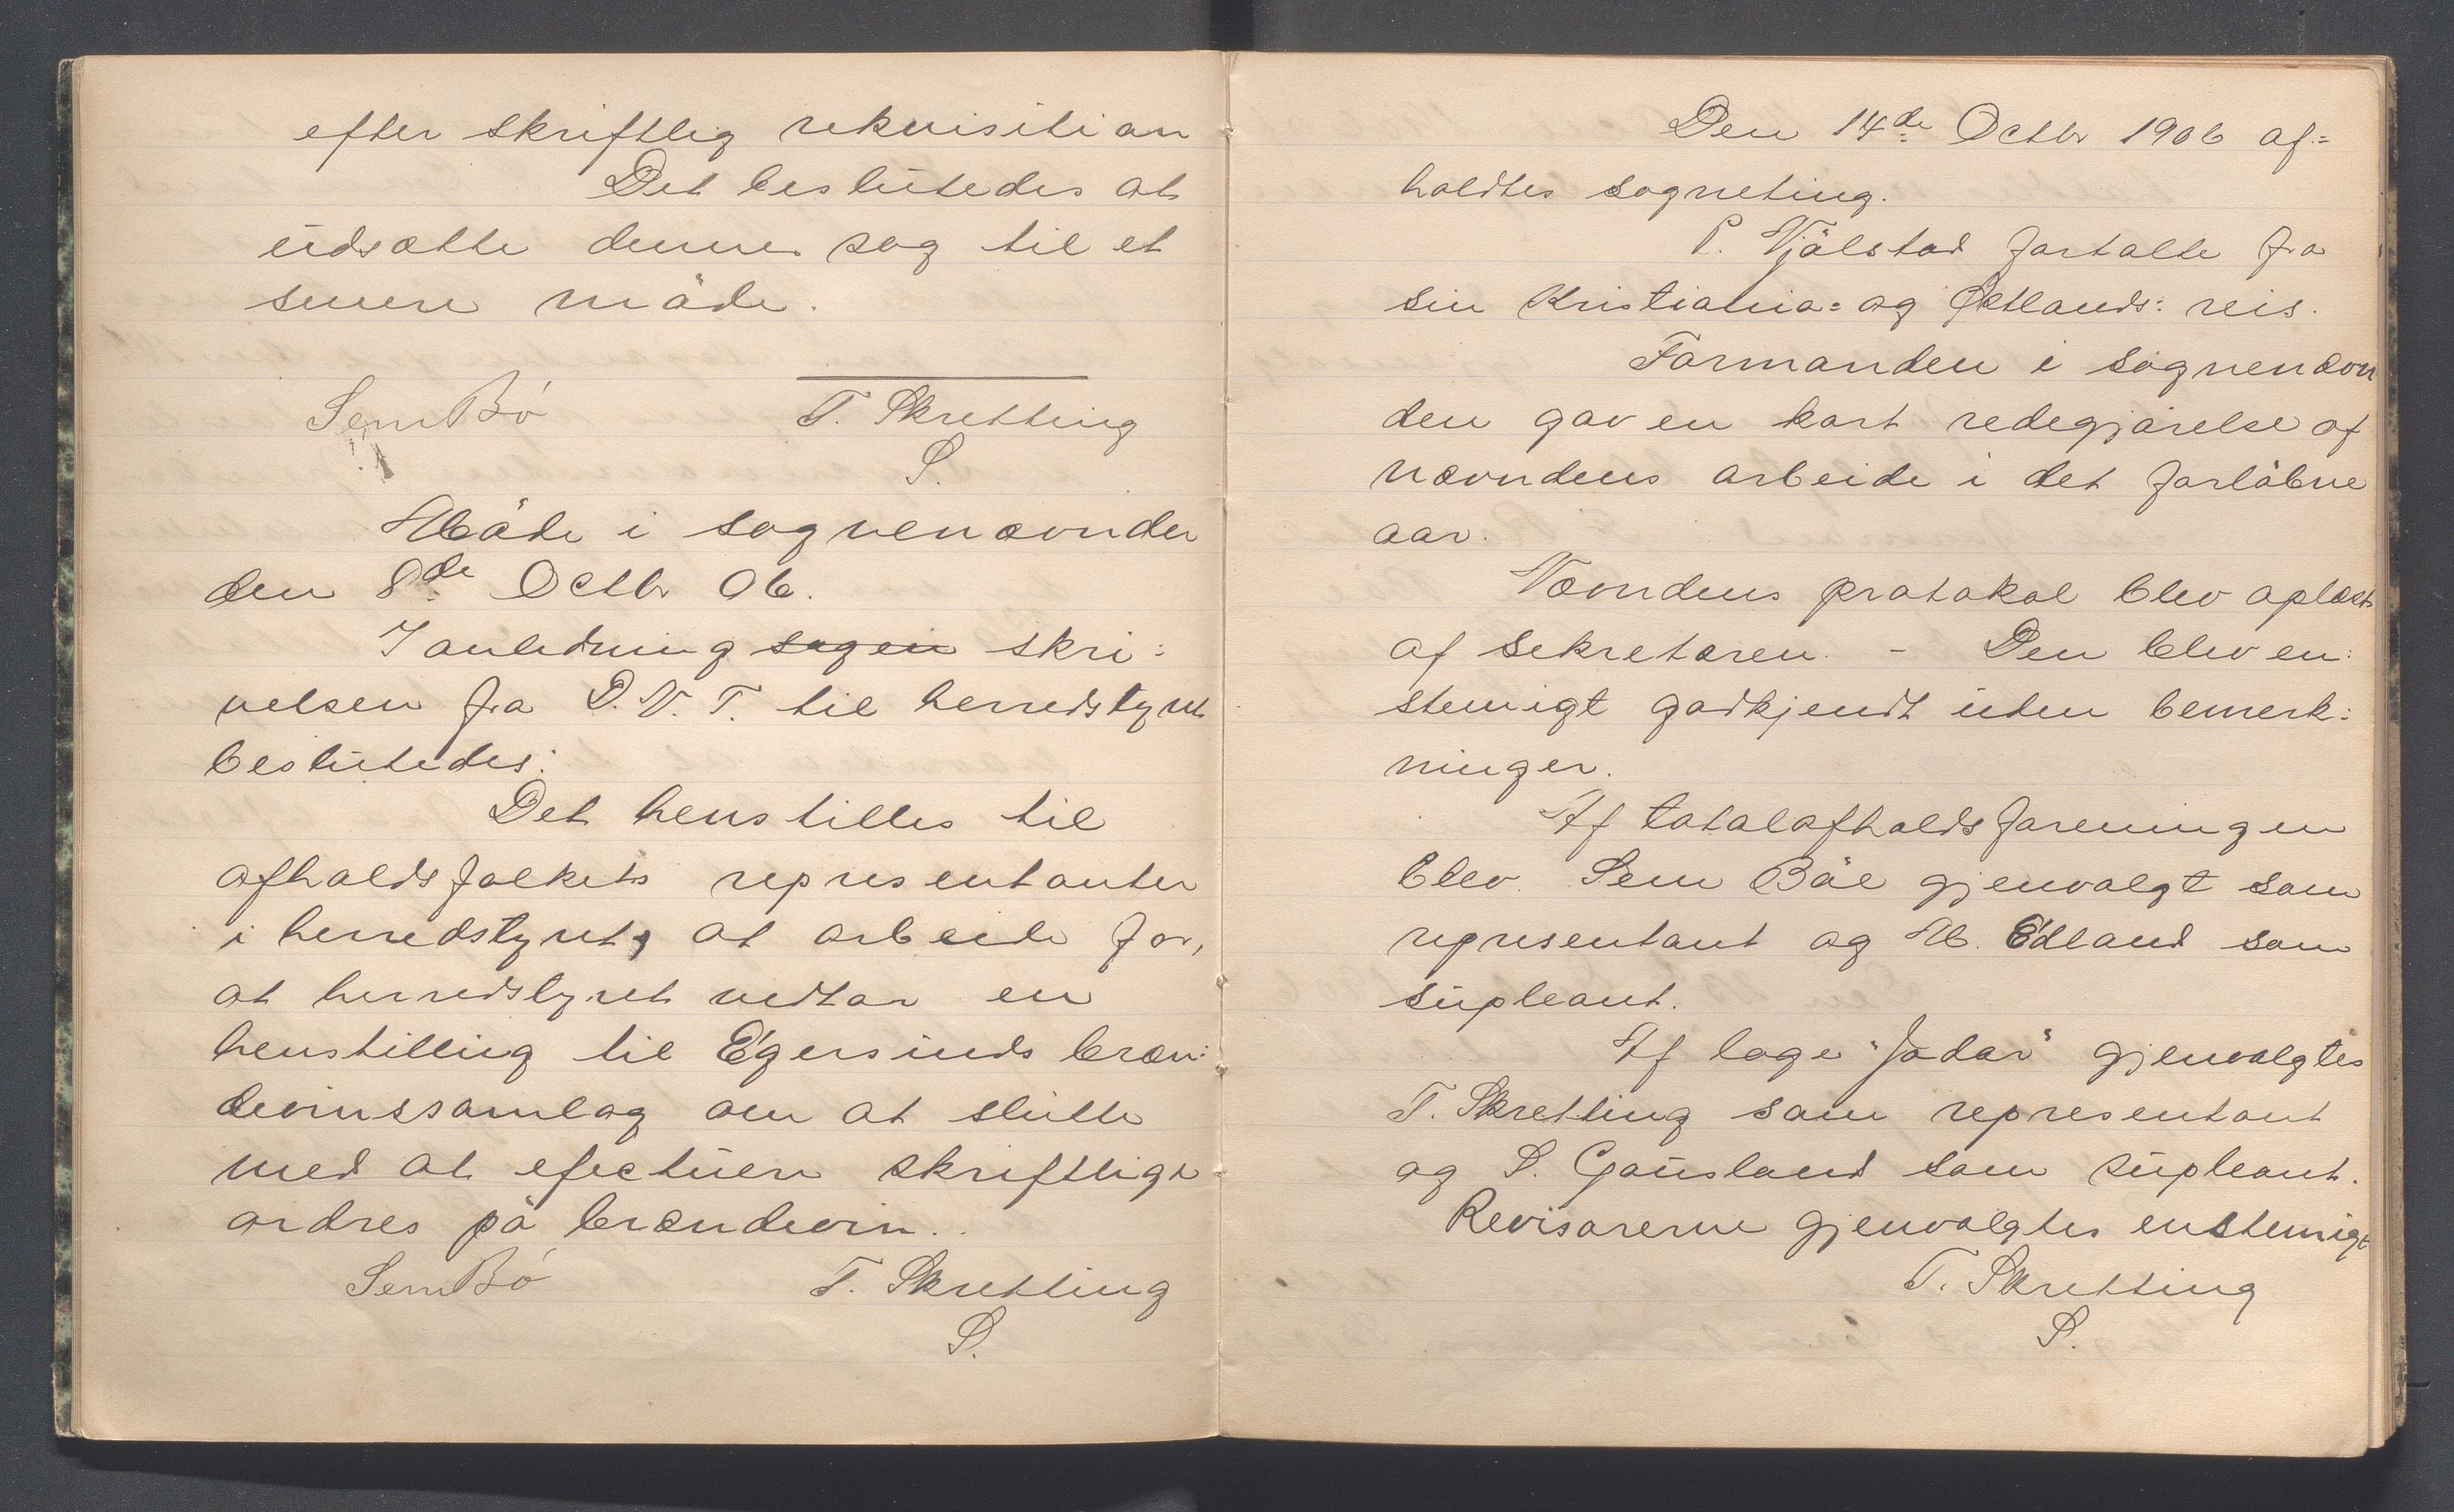 efter skriftlig rekvisition
Det beslutedes at
udsætte denne sag til et
senere møde.
Sem Bö T. Skretting
S.
Möde i sognenævnden
den 8de Octbr 06.
I anledning sagen skri:
velsen fra D.N.T. til herredstyret
beslutedes:
Det henstilles til
afholdsfolkets representanter
i herredstyret, at arbeide for,
at herredstyret vedtar en
henstilling til Egersunds bræn:
devinssamlag om at slutte
med at efectuere skriftlige
ordres på brændevin.
Sem Bö T. Skretting
S.
Den 14de Octbr 1906 af=
holdtes sogneting.
P. Vjålstad fortalte fra
sin Kristiania= og Østlands: reis.
Formanden i sognenævn
den gav en kort redegjörelse af
nævndens arbeide i det forløbne
aar.
Nævndens protokol blev oplæst
af sekretæren. - Den blev en:
stemigt godkjendt uden bemerk:
ninger.
Af totalafholdsforeningen
blev Sem Böe gjenvalgt som
representant og M. Edland som
supleant.
Af loge "Jadar" gjenvalgtes
T. Skretting som representant
og S. Gausland som supleant.
Revisorerne gjenvalgtes enstemigt
T. Skretting
S.